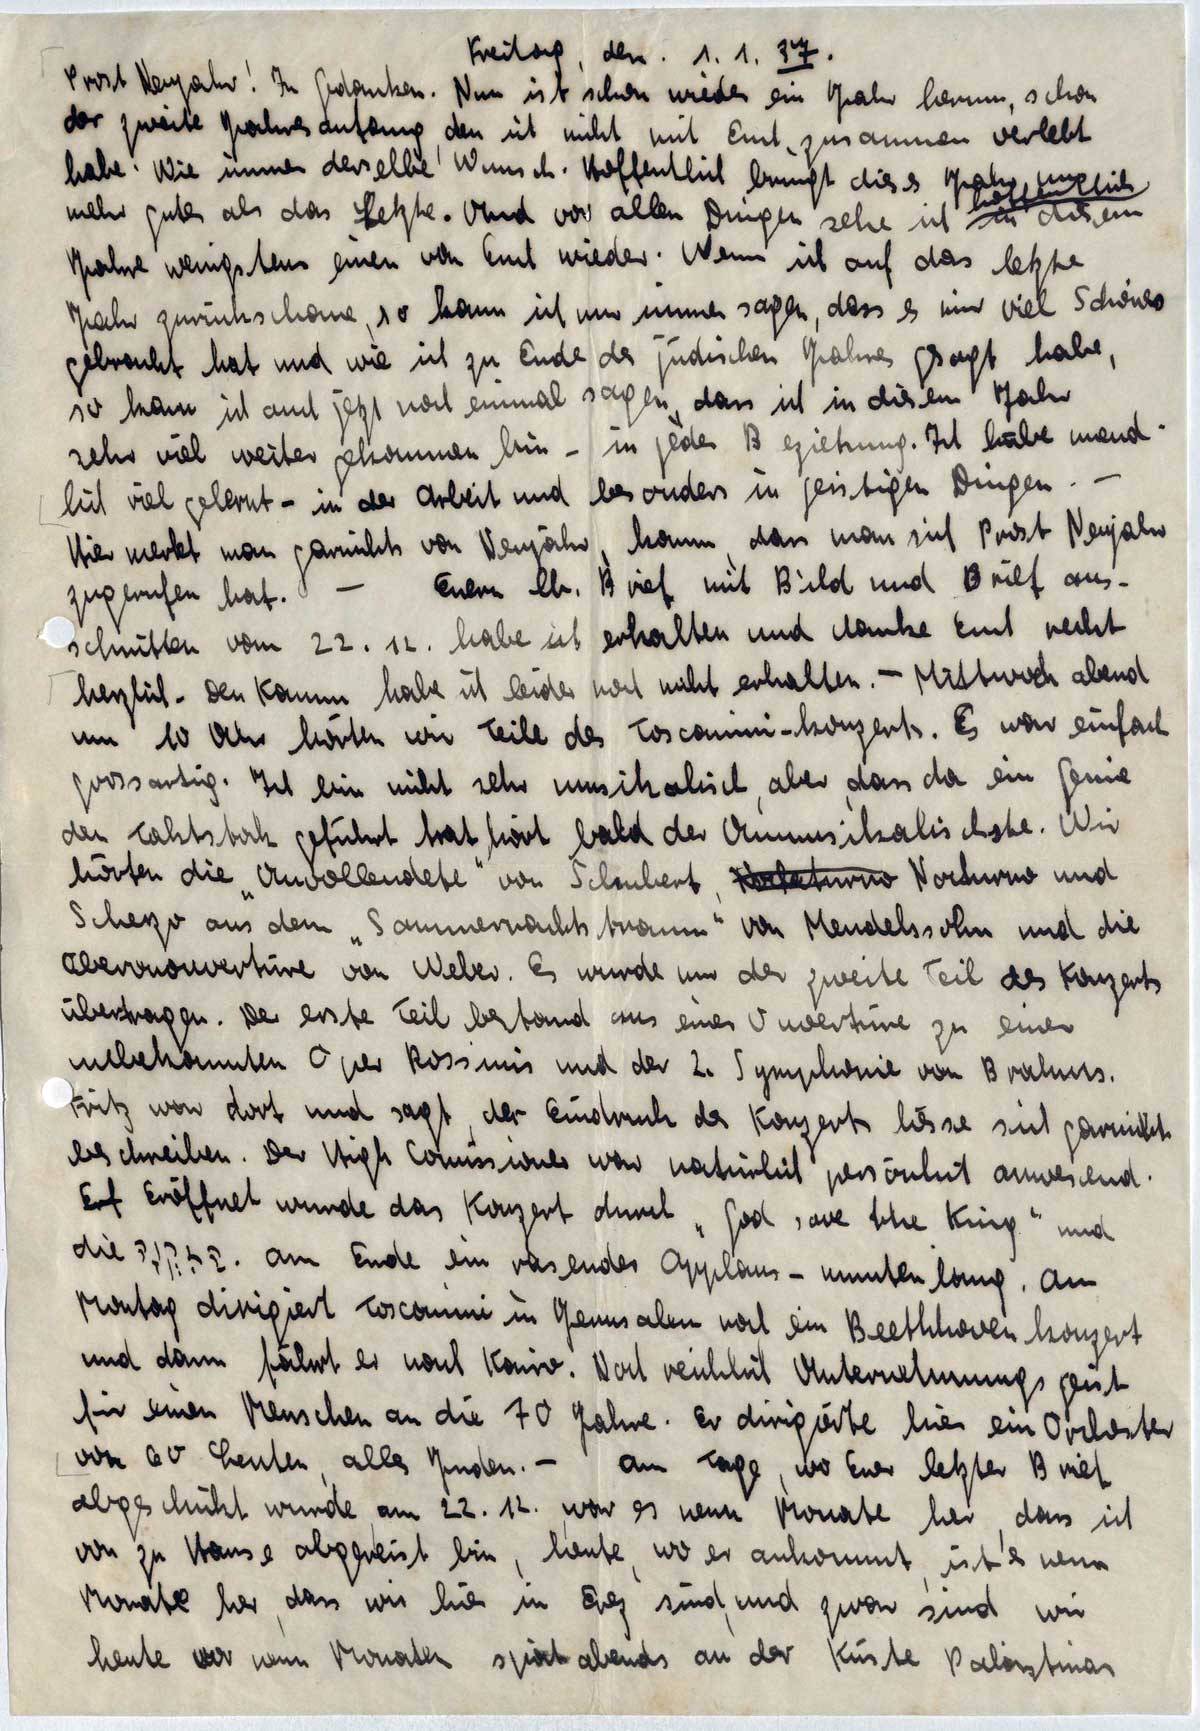 Freitag, den 1. 1. 37.
Prost Neujahr! In Gedanken. Nun ist schon wieder ein Jahr herum, schon
der zweite Jahresanfang, den ich nicht mit Euch zusammen verlebt
habe. Wie immer derselbe Wunsch. Hoffentlich bringt dieses Jahr uns
mehr gutes als das Letzte. Und vor allen Dingen sehe ich hoffentlich in diesem
Jahre wenigstens einen von Euch wieder. Wenn ich auf das letzte
Jahr zurückschaue, so kann ich nur immer sagen, dass es mir viel Schönes
gebracht hat und wie ich zu Ende des jüdischen Jahres gesagt habe,
so kann ich auch jetzt noch einmal sagen, dass ich in diesem Jahr
sehr viel weiter gekommen bin – in jeder Beziehung. Ich habe
viel gelernt – in der Arbeit und besonders in geistigen Dingen. –
Hier merkt man garnichts von Neujahr, kaum, dass man sich Prost Neujahr
zugerufen hat. – Euern lb. Brief mit Bild und Brief aus-
schnitten vom 22. 12. habe ich erhalten und danke Euch recht
herzlich. Den Kamm habe ich leider noch nicht erhalten. – Mittwoch abend
um 10 Uhr hörten wir Teile des Toscanini-konzerts. Es war einfach
grossartig. Ich bin nicht sehr musikalisch, aber, dass da ein Genie
den Taktstock geführt hat hört bald der Unmusikalischste. Wir
hörten die „Unvollendete" von Schubert, Nocturno und
Scherzo aus dem „Sommernachtstraum" von Mendelssohn und die
Oberonouvertüre von Weber. Es wurde nur der zweite Teil des Konzerts
übertragen. Der erste Teil bestand aus einer Ouvertüre zu einer
unbekannten Oper Rossinis und der 2. Symphonie von Brahms.
Fritz war dort und sagt, der Eindruck des Konzerts liesse sich garnicht
beschreiben. Der High Comissioner war natürlich persönlich anwesend.
Erf Eröffnet wurde das Konzert durch „God save the King" und
die התקוה. Am Ende ein rasender Applaus – minutenlang. Am
Montag dirigiert Toscanini in Jerusalem noch ein Beethhoven konzert
und dann fährt er nach Kairo. Noch reichlich Unternehmungsgeist
für einen Menschen an die 70 Jahre. Er dirigierte hier ein Orchester
von 60 Leuten, alles Juden. – Am Tage, wo Euer letzter Brief
abgeschickt wurde am 22. 12. war es neun Monate her, dass ich
von zu Hause abgereist bin, heute, wo er ankommt, ist's neun
Monate her, dass wir hier in Erez sind, und zwar sind wir
heute vor neun Monaten spät abends an der Küste Palästinas